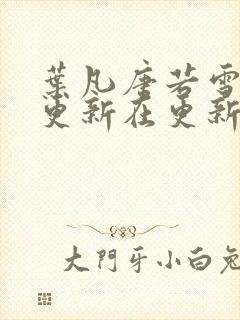 葉凡唐若雪
更新在更新
大門牙小白兔